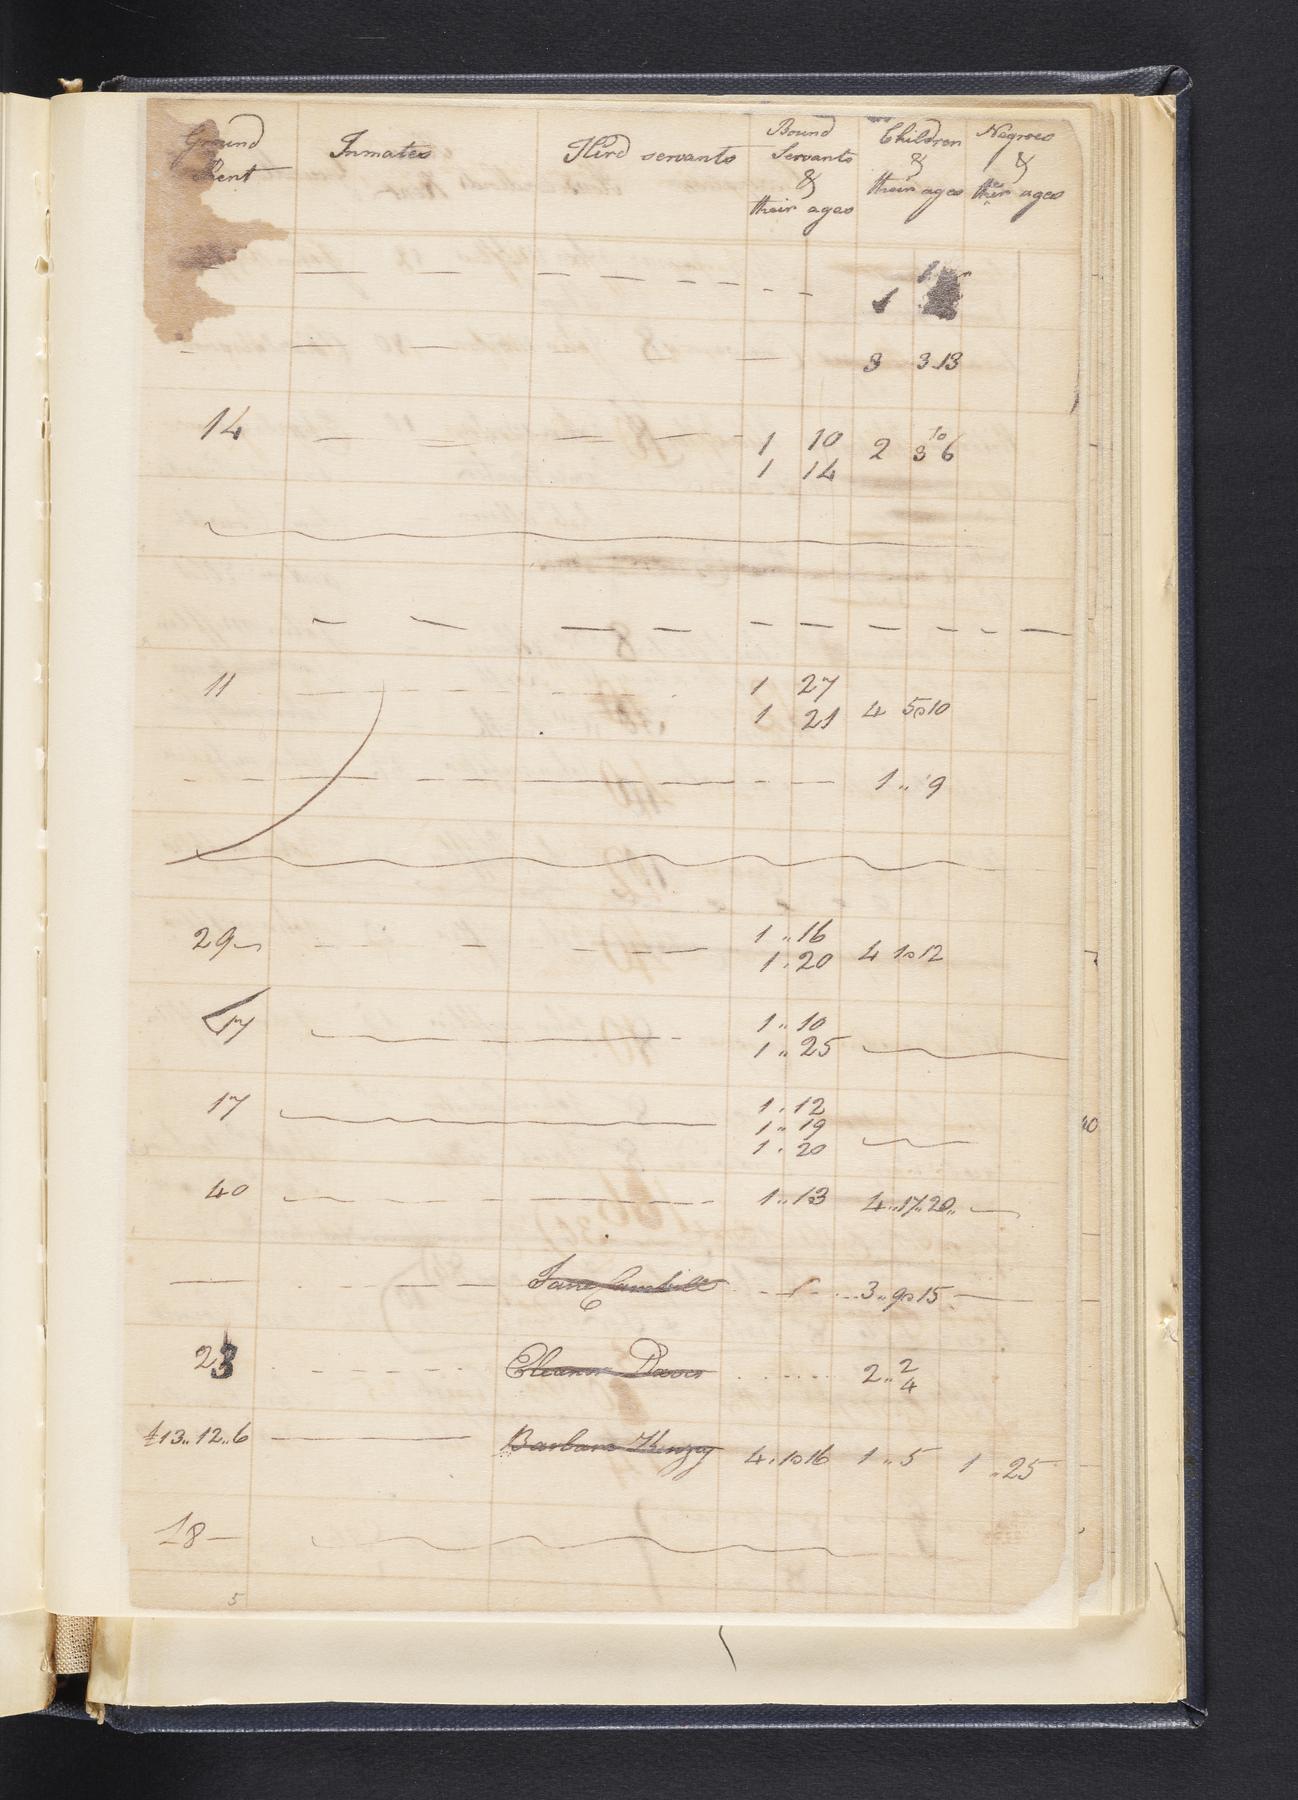 Ground Rent Inmates Hird servants Bound Servants & their ages Children & their ages Negroes & their ages
1
3 3.13
14 1 10 2 10 3 6
1 14
11 1 27
1 21 4 5 to 10
1 " 9
29 1 " 16
1 " 20 4 1 to 12
17 1 " 10
1 " 25
17 1 " 12
1 " 19
1 " 20
40 1 " 13 4 " 17 " 20 "
Jane 3 " 9 to 15
23 Eleanor Davis 2 " 2
4
£13 " 12 " 6 Barbara 4 " 1 to 16 1 " 5 1 " 25
18
5